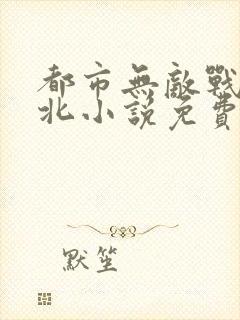 都市無敵戰
北小說免費
默笙